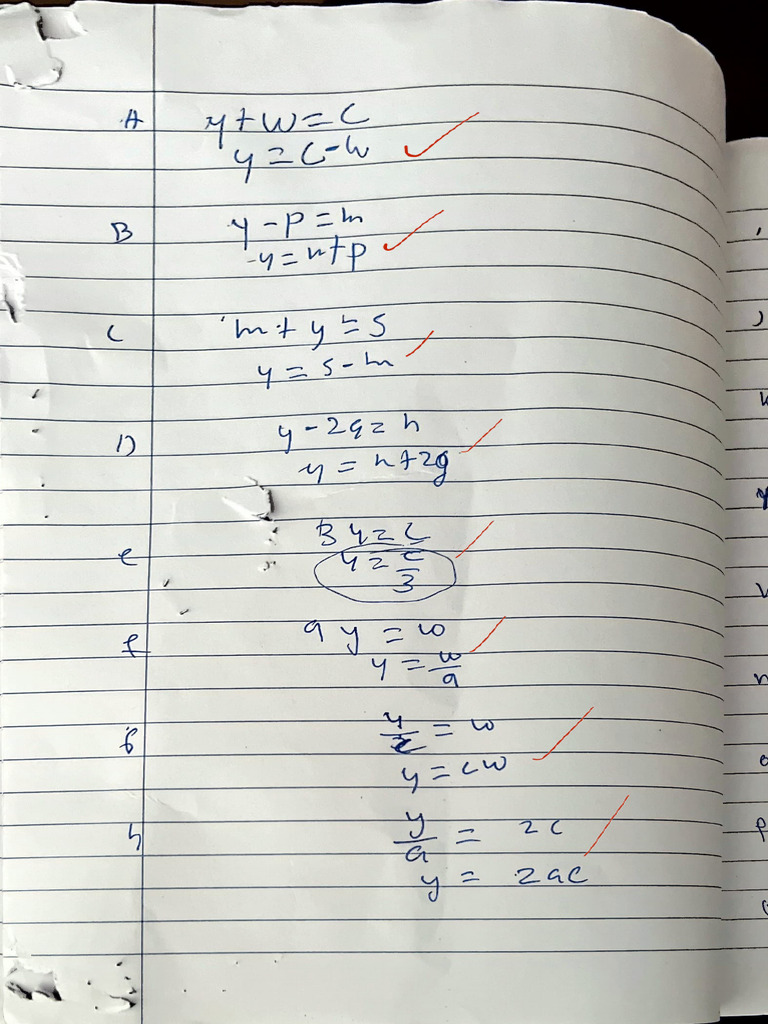 A y + w = c
y = c - w
B y - p = m
y = m + p
C m + y = s
y = s - m
D y - 2q = n
y = n + 2g
e 3y = c
y = c/3
f a y = w
y = w/a
g y/c = w
y = cw
h y/a = 2c
y = 2ac